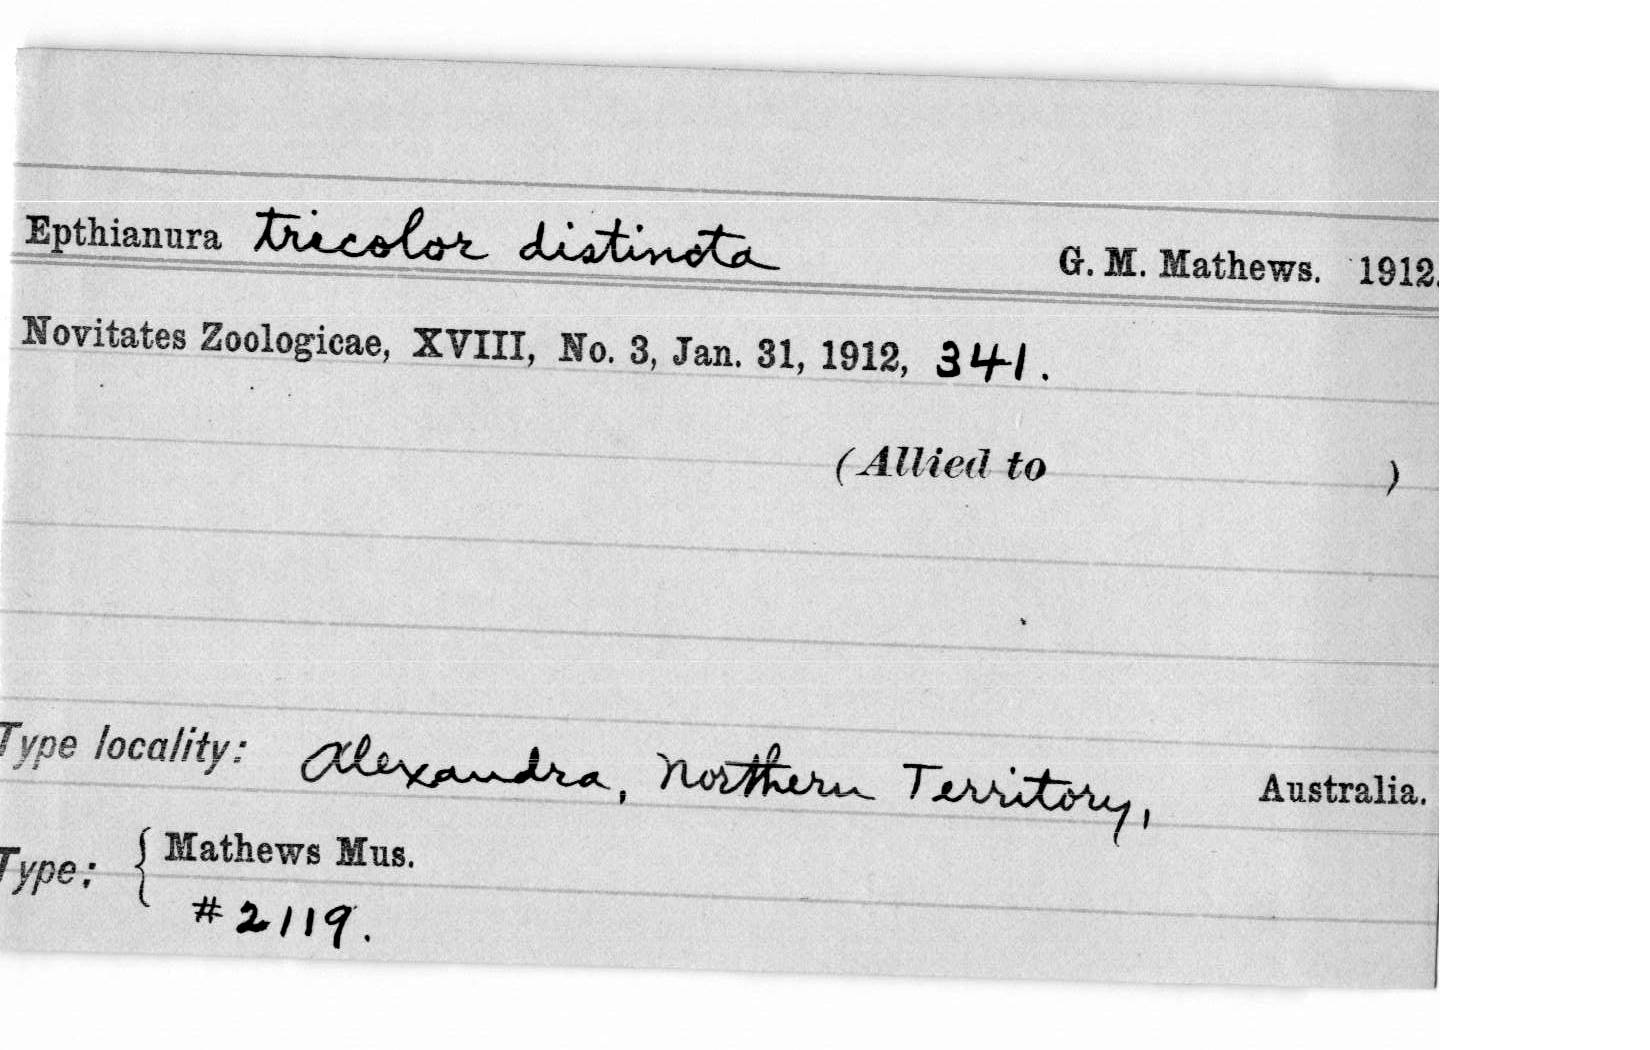 Epthianura tricolor distincta G. M. Mathews. 1912.
Novitates Zoologicae, XVIII, No. 3, Jan. 31, 1912, 341.
(Allied to )
Type locality: Alexandra, Northern Territory, Australia.
Type: { Mathews Mus.
#2119.